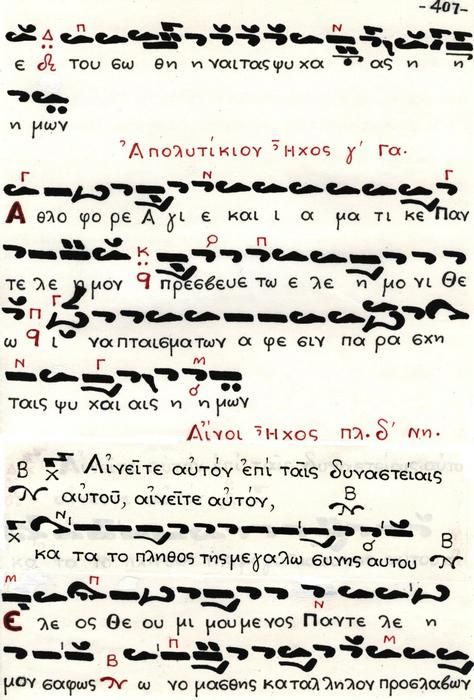 -407-
ε δι του σω θη η ναι τας ψυ χα ας η η
η μων
Ἀπολυτίκιον Ἦχος γ' Γα.
Α θλο φο ρε Α γι ε και ι α μα τι κε Παν
τε λε η μον πρεσβευε τω ε λε η μο νι Θε
ω ι να πταισματων α φε σιν πα ρα σχη
ταις ψυ χαι αις η η μων
Αἶνοι Ἦχος πλ. δ' Νη.
Αἰνεῖτε αὐτόν ἐπί ταῖς δυναστείαις
αὐτοῦ, αἰνεῖτε αὐτόν,
κα τα το πληθος της με γα λω συνης αυτου
Ε λε ος Θε ου μι μου με νος Παν τε λε η
μον σαφως ω νο μασθης καταλληλον προσλαβων